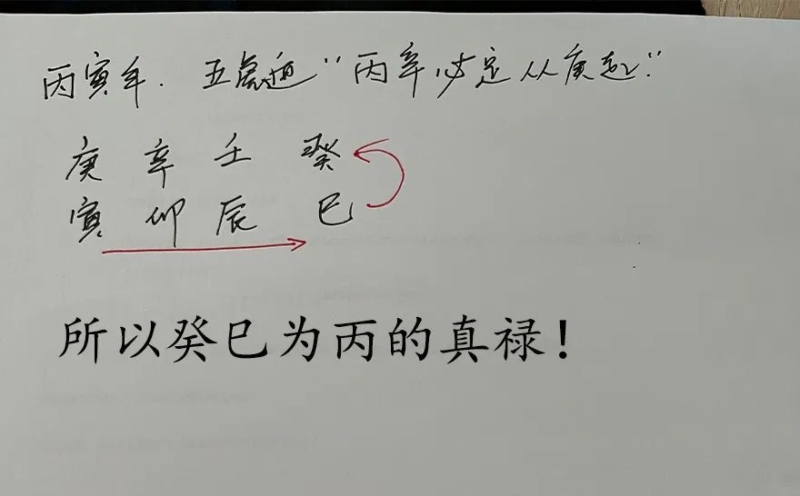 丙寅年. 五虎遁"丙辛必定从庚起".
庚 辛 壬 癸
寅 卯 辰 巳
所以癸巳为丙的真禄!